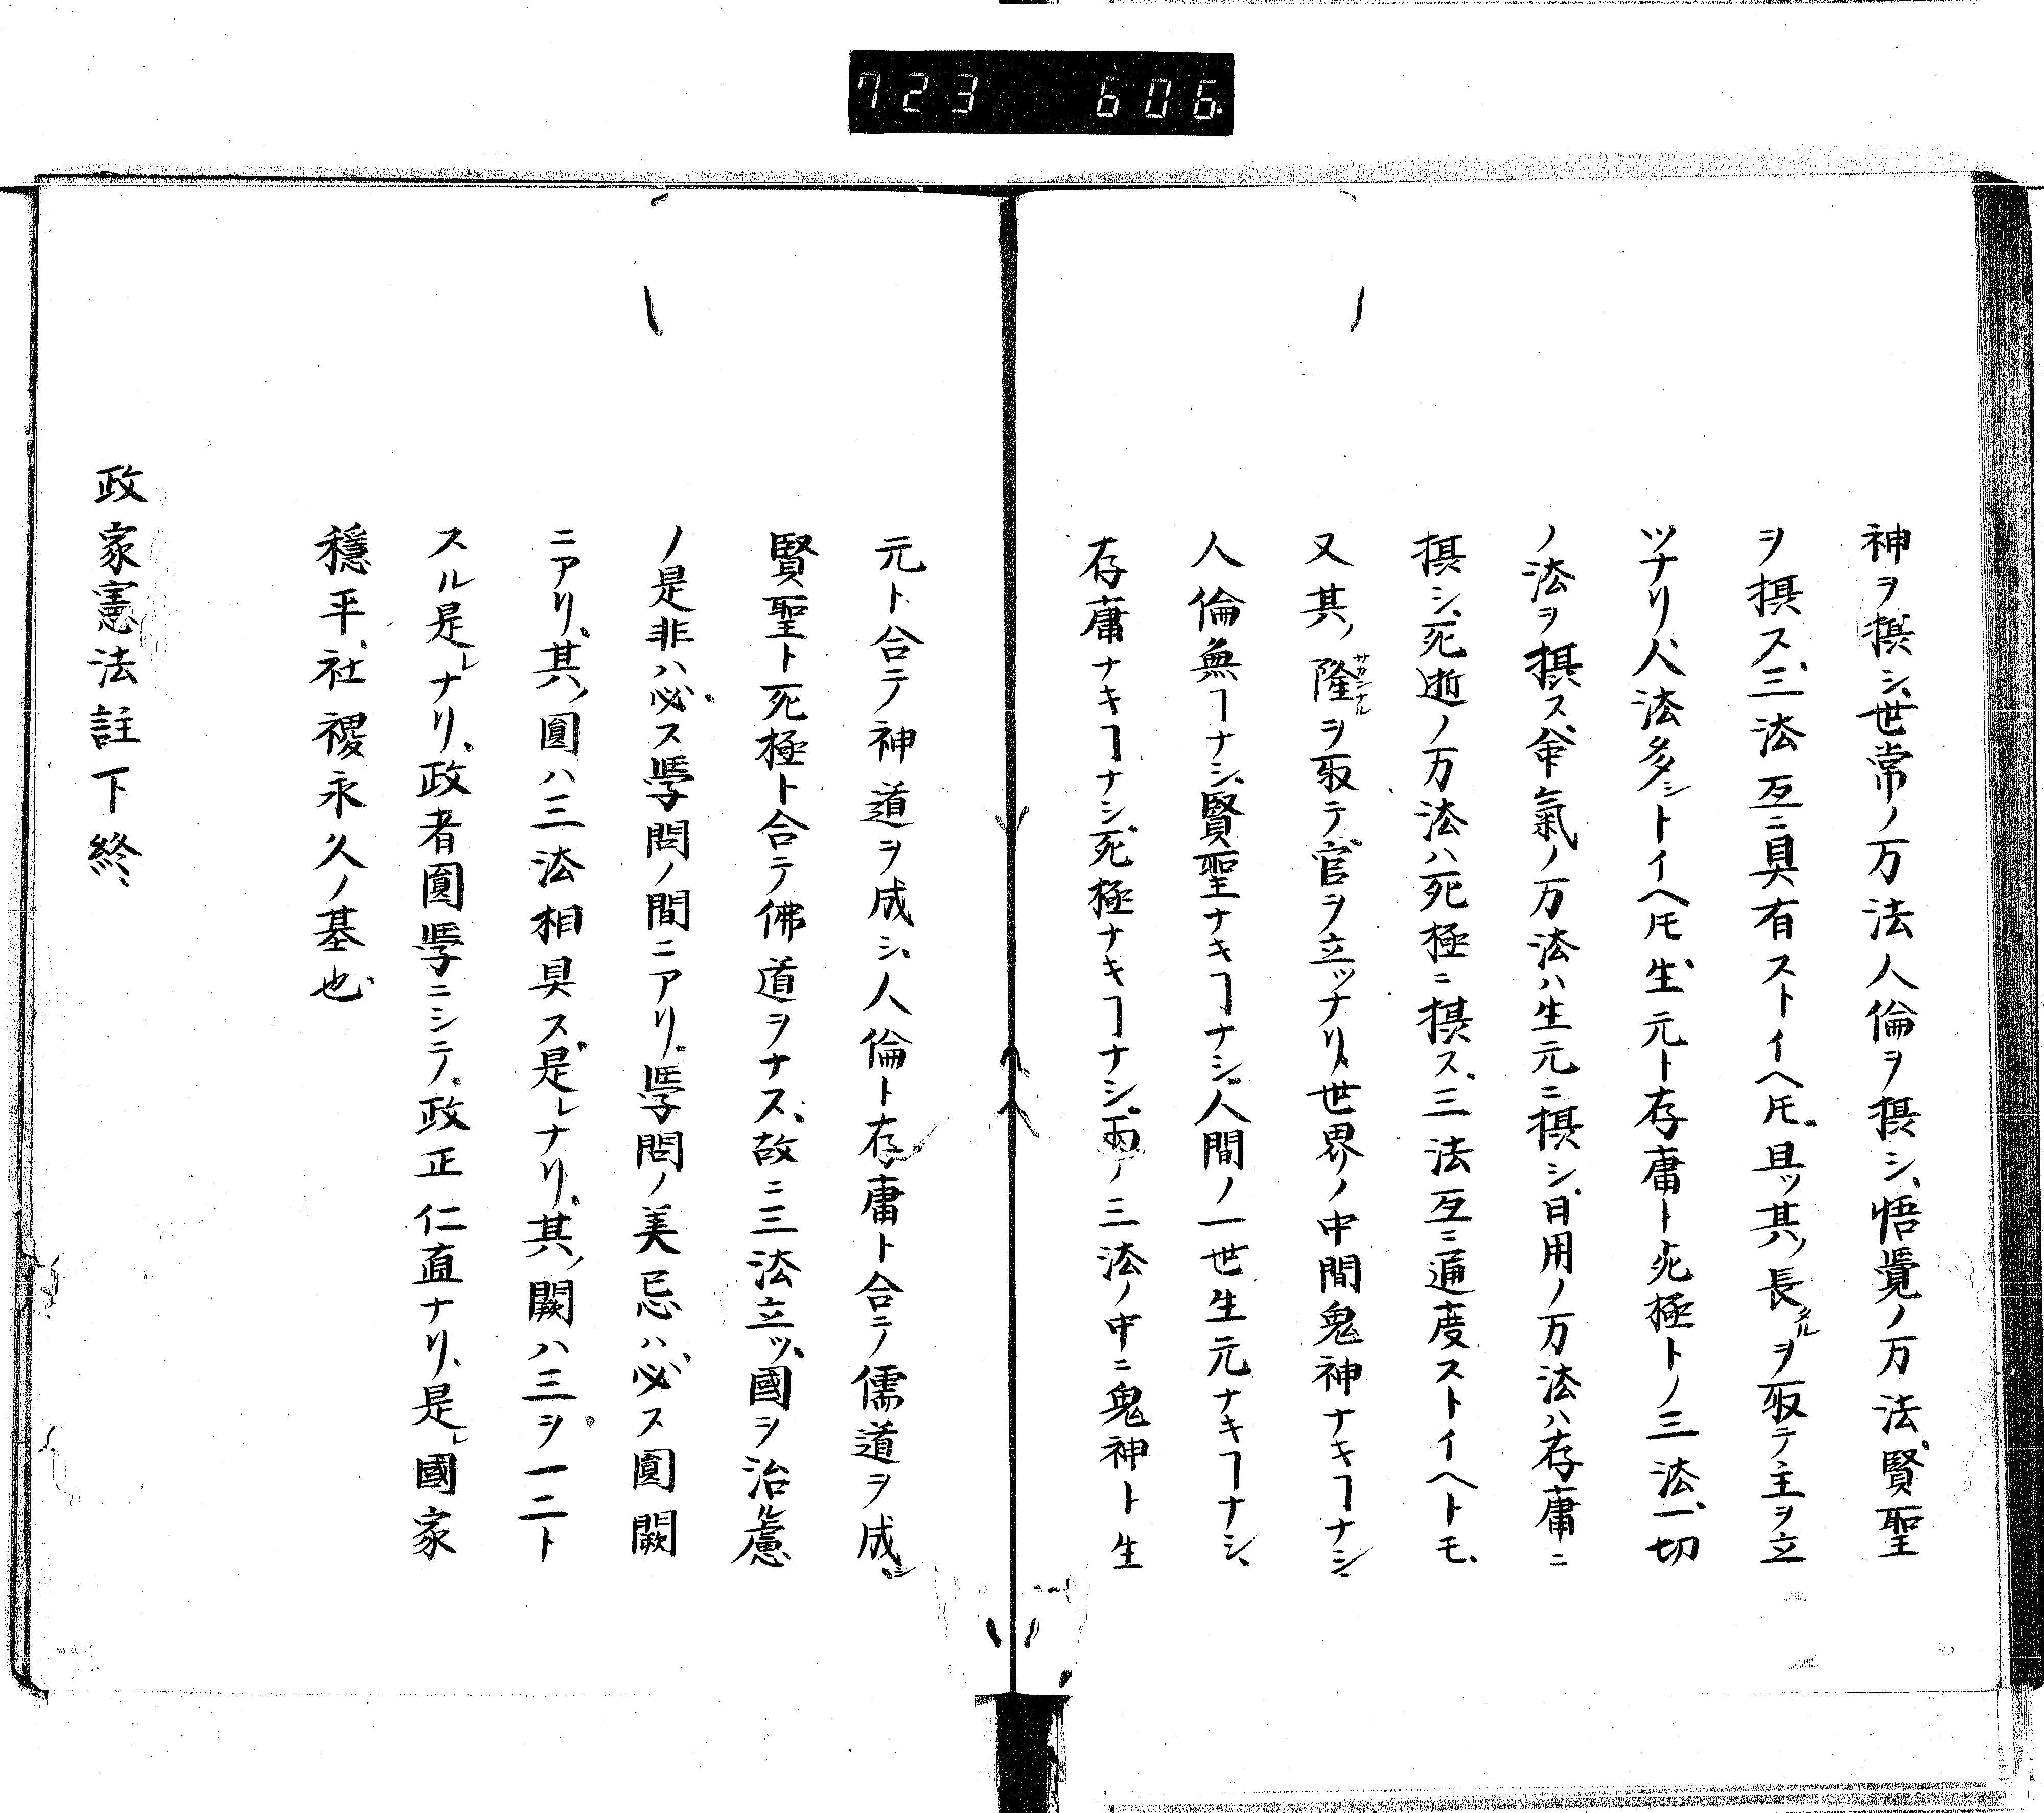 723 606.
神ヲ摂シ、世常ノ万法人倫ヲ摂シ、悟覺ノ万法賢聖
ヲ摂ス、三法互ニ具有ストイヘ𪜈、具ツ其ノ長タルヲ取テ主ヲ立
ツナリ、人法多シトイヘ𪜈、生元ト存庸ト死極トノ三法、一切
ノ法ヲ摂ス、命氣ノ万法ハ生元ニ摂シ、日用ノ万法ハ存庸ニ
摂シ、死逝ノ万法ハ死極ニ摂ス、三法互ニ通度ストイヘトモ、
又其ノ隆サカンナルヲ取テ官ヲ立ツナリ、世界ノ中間鬼神ナキヿナシ、
人倫無ヿナシ、賢聖ナキヿナシ、人間ノ一世生元ナキヿナシ、
存庸ナキヿナシ、死極ナキヿナシ、兩ノ三法ノ中ニ鬼神ト生
元ト合テ神道ヲ成シ、人倫ト存庸ト合テ儒道ヲ成シ、
賢聖ト死極ト合テ佛道ヲナス、故ニ三法立ツ、國ヲ治ル慮
ノ是非ハ必ス學問ノ間ニアリ、學問ノ美忌ハ必ス圓闕
ニアリ、其ノ圓ハ三法相具ス是レナリ、其ノ闕ハ三ヲ一二ト
スル是レナリ、政者圓學ニシテ、政正仁直ナリ、是レ國家
穩平、社稷永久ノ基也、
政家憲法註下終